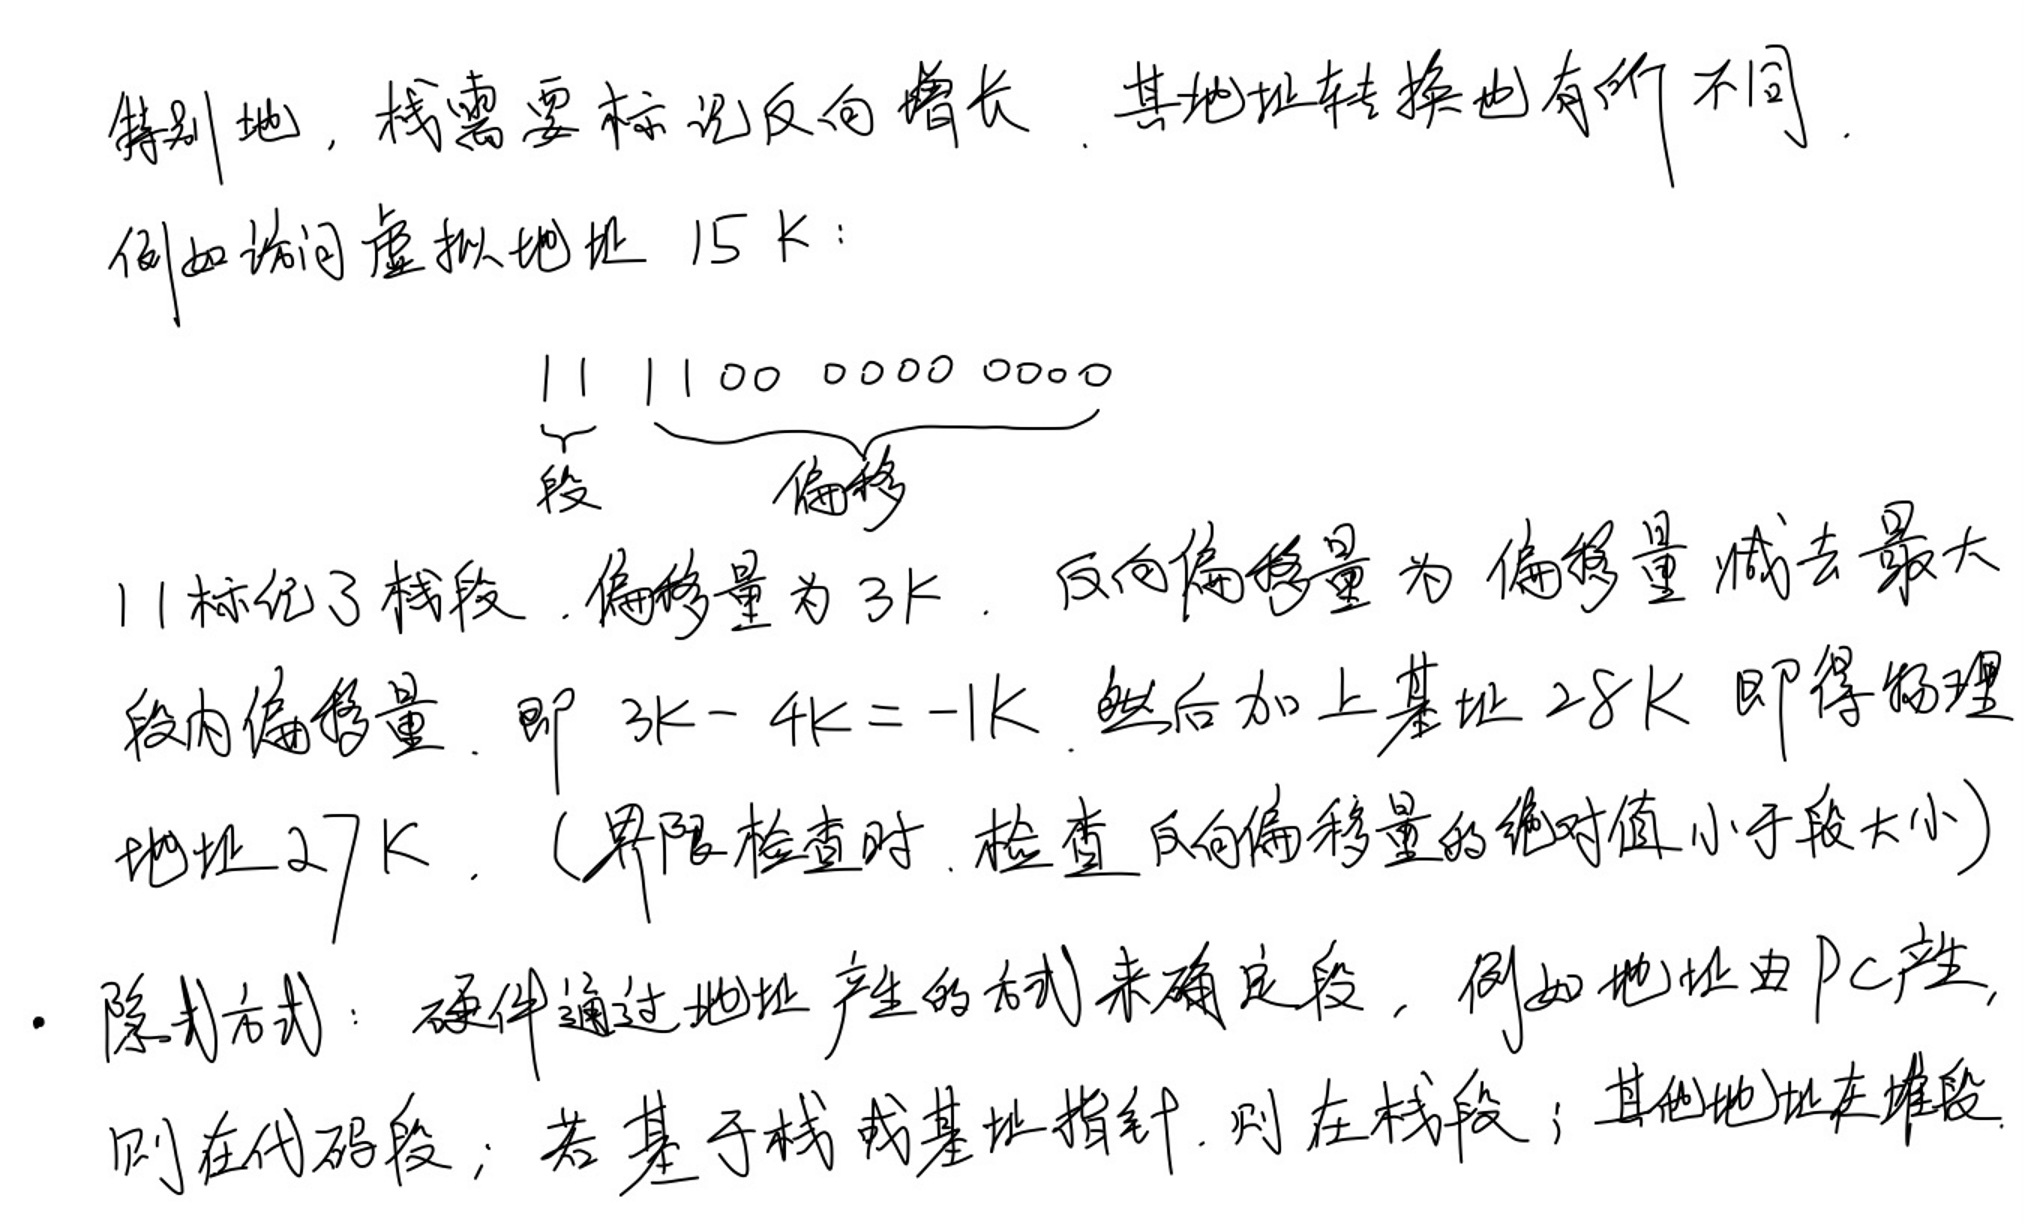 特别地, 栈需要标记反向增长. 其地址转换也有所不同.
例如访问虚拟地址 15K:
11 1100 0000 0000
段 偏移
11标记了栈段. 偏移量为3K. 反向偏移量为偏移量减去最大
段内偏移量. 即 3K - 4K = -1K. 然后加上基址28K 即得物理
地址27K. (界限检查时. 检查反向偏移量的绝对值小于段大小)
· 隐式方式: 硬件通过地址产生的方式来确定段, 例如地址由PC产生,
则在代码段; 若基于栈或基址指针. 则在栈段; 其他地址在堆段.